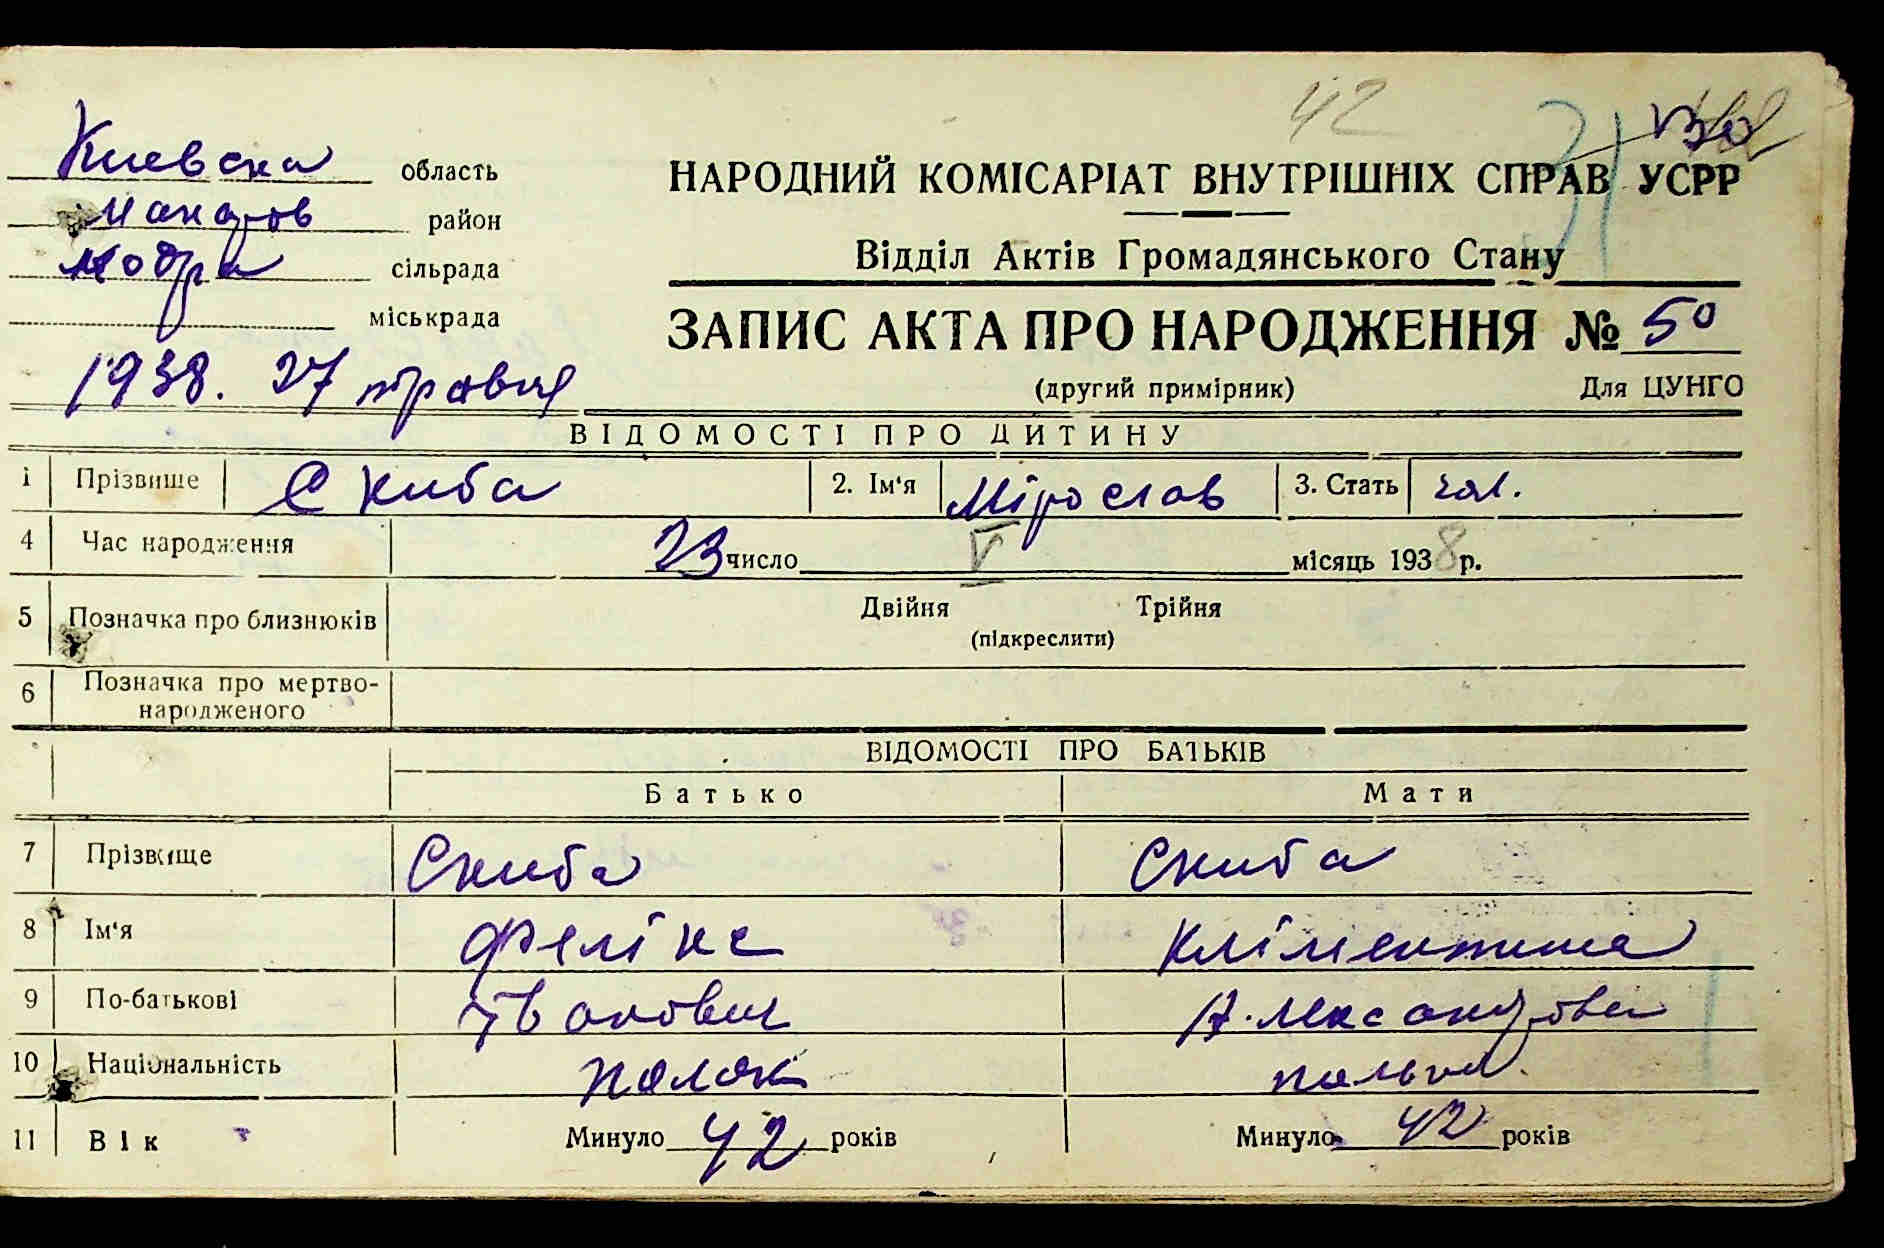 42
Киевска область
НАРОДНИЙ КОМІСАРІАТ ВНУТРІШНІХ СПРАВ УСРР
Макаров район
Відділ Актів Громадянського Стану
сільрада
міськрада
ЗАПИС АКТА ПРО НАРОДЖЕННЯ № 50
1938. 27 травня
(другий примірник) Для ЦУНГО
ВІДОМОСТІ ПРО ДИТИНУ
1 Прізвище Скиба 2. Ім'я Мірослав 3. Стать чол.
4 Час народження 23 число V місяць 1938 р.
5 Позначка про близнюків Двійня Трійня
(підкреслити)
6 Позначка про мертво-
народженого
ВІДОМОСТІ ПРО БАТЬКІВ
Батько Мати
7 Прізвище Скиба Скиба
8 Ім'я Фелікс Кліментина
9 По-батькові Іванович Александрова
10 Національність поляк полька
11 Вік Минуло 42 років Минуло 42 років